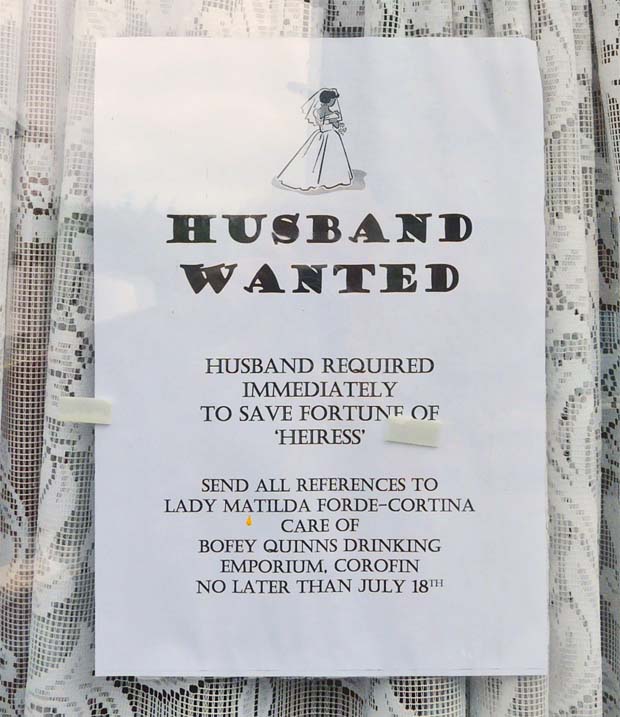 HUSBAND
WANTED
HUSBAND REQUIRED
IMMEDIATELY
TO SAVE FORTUNE OF
‘HEIRESS’
SEND ALL REFERENCES TO
LADY MATILDA FORDE-CORTINA
CARE OF
BOFEY QUINNS DRINKING
EMPORIUM, COROFIN
NO LATER THAN JULY 18TH